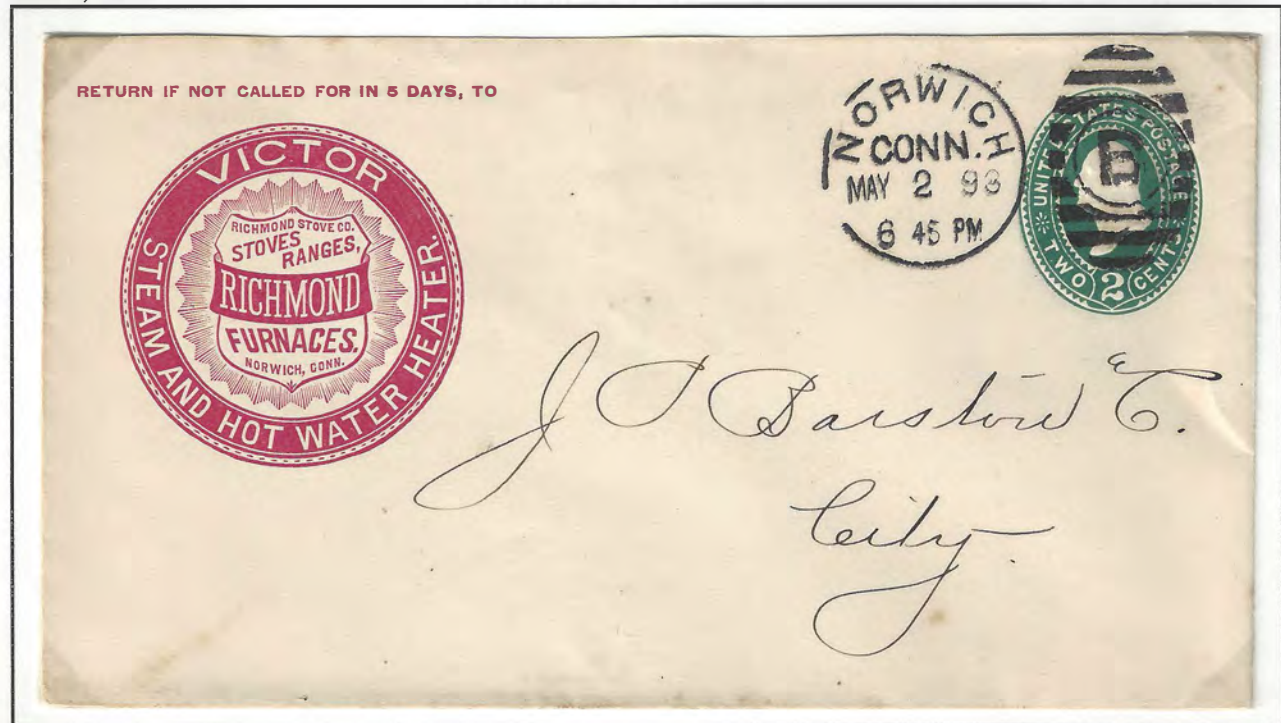 RETURN IF NOT CALLED FOR IN 5 DAYS, TO
VICTOR
STEAM AND HOT WATER HEATER.
RICHMOND STOVE CO.
STOVES
RANGES,
RICHMOND
FURNACES.
NORWICH, CONN.
NORWICH
CONN.
MAY 2 93
6 45 PM
UNITED STATES POSTAGE
TWO 2 CENTS
J P Barstow & C.
City.